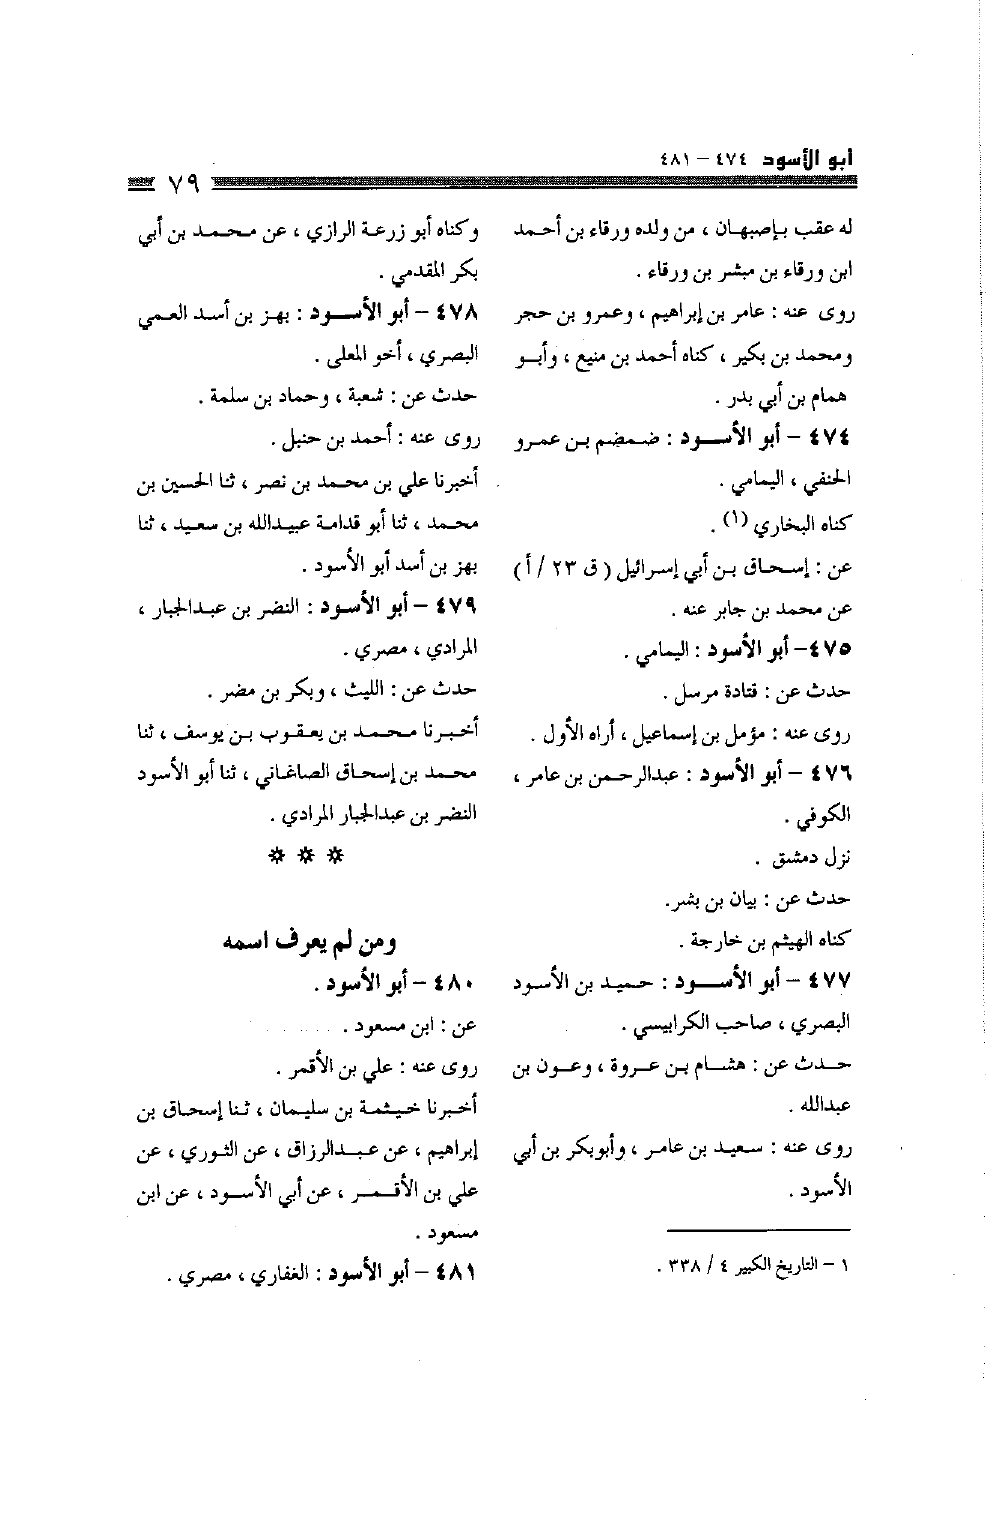 أبو الأسود ٤٧٤ – ٤٨١
٧٩
له عقب بإصبهان ، من ولده ورقاء بن أحمد
ابن ورقاء بن مبشر بن ورقاء .
روى عنه : عامر بن إبراهيم ، وعمرو بن حجر
ومحمد بن بكير ، كناه أحمد بن منيع ، وأبو
همام بن أبي بدر .
٤٧٤ – أبو الأسود : ضمضم بن عمرو
الحنفي ، اليمامي .
كناه البخاري (١) .
عن : إسحاق بن أبي إسرائيل ( ق ٢٣ / أ )
عن محمد بن جابر عنه .
٤٧٥– أبو الأسود : اليمامي .
حدث عن : قتادة مرسل .
روى عنه : مؤمل بن إسماعيل ، أراه الأول .
٤٧٦ – أبو الأسود : عبدالرحمن بن عامر ،
الكوفي .
نزل دمشق .
حدث عن : بيان بن بشر.
كناه الهيثم بن خارجة .
٤٧٧ – أبو الأسود : حميد بن الأسود
البصري ، صاحب الكرابيسي .
حدث عن : هشام بن عروة ، وعون بن
عبدالله .
روى عنه : سعيد بن عامر ، وأبوبكر بن أبي
الأسود .
١ – التاريخ الكبير ٤ / ٣٣٨ .
وكناه أبو زرعة الرازي ، عن محمد بن أبي
بكر المقدمي .
٤٧٨ – أبو الأسود : بهز بن أسد العمي
البصري ، أخو المعلى .
حدث عن : شعبة ، وحماد بن سلمة .
روى عنه : أحمد بن حنبل .
أخبرنا علي بن محمد بن نصر ، ثنا الحسين بن
محمد ، ثنا أبو قدامة عبيدالله بن سعيد ، ثنا
بهز بن أسد أبو الأسود .
٤٧٩ – أبو الأسود : النضر بن عبدالجبار ،
المرادي ، مصري .
حدث عن : الليث ، وبكر بن مضر .
أخبرنا محمد بن يعقوب بن يوسف ، ثنا
محمد بن إسحاق الصاغاني ، ثنا أبو الأسود
النضر بن عبدالجبار المرادي .
* * *
ومن لم يعرف اسمه
٤٨٠ – أبو الأسود .
عن : ابن مسعود .
روى عنه : علي بن الأقمر .
أخبرنا خيثمة بن سليمان ، ثنا إسحاق بن
إبراهيم ، عن عبدالرزاق ، عن الثوري ، عن
علي بن الأقمر ، عن أبي الأسود ، عن ابن
مسعود .
٤٨١ – أبو الأسود : الغفاري ، مصري .